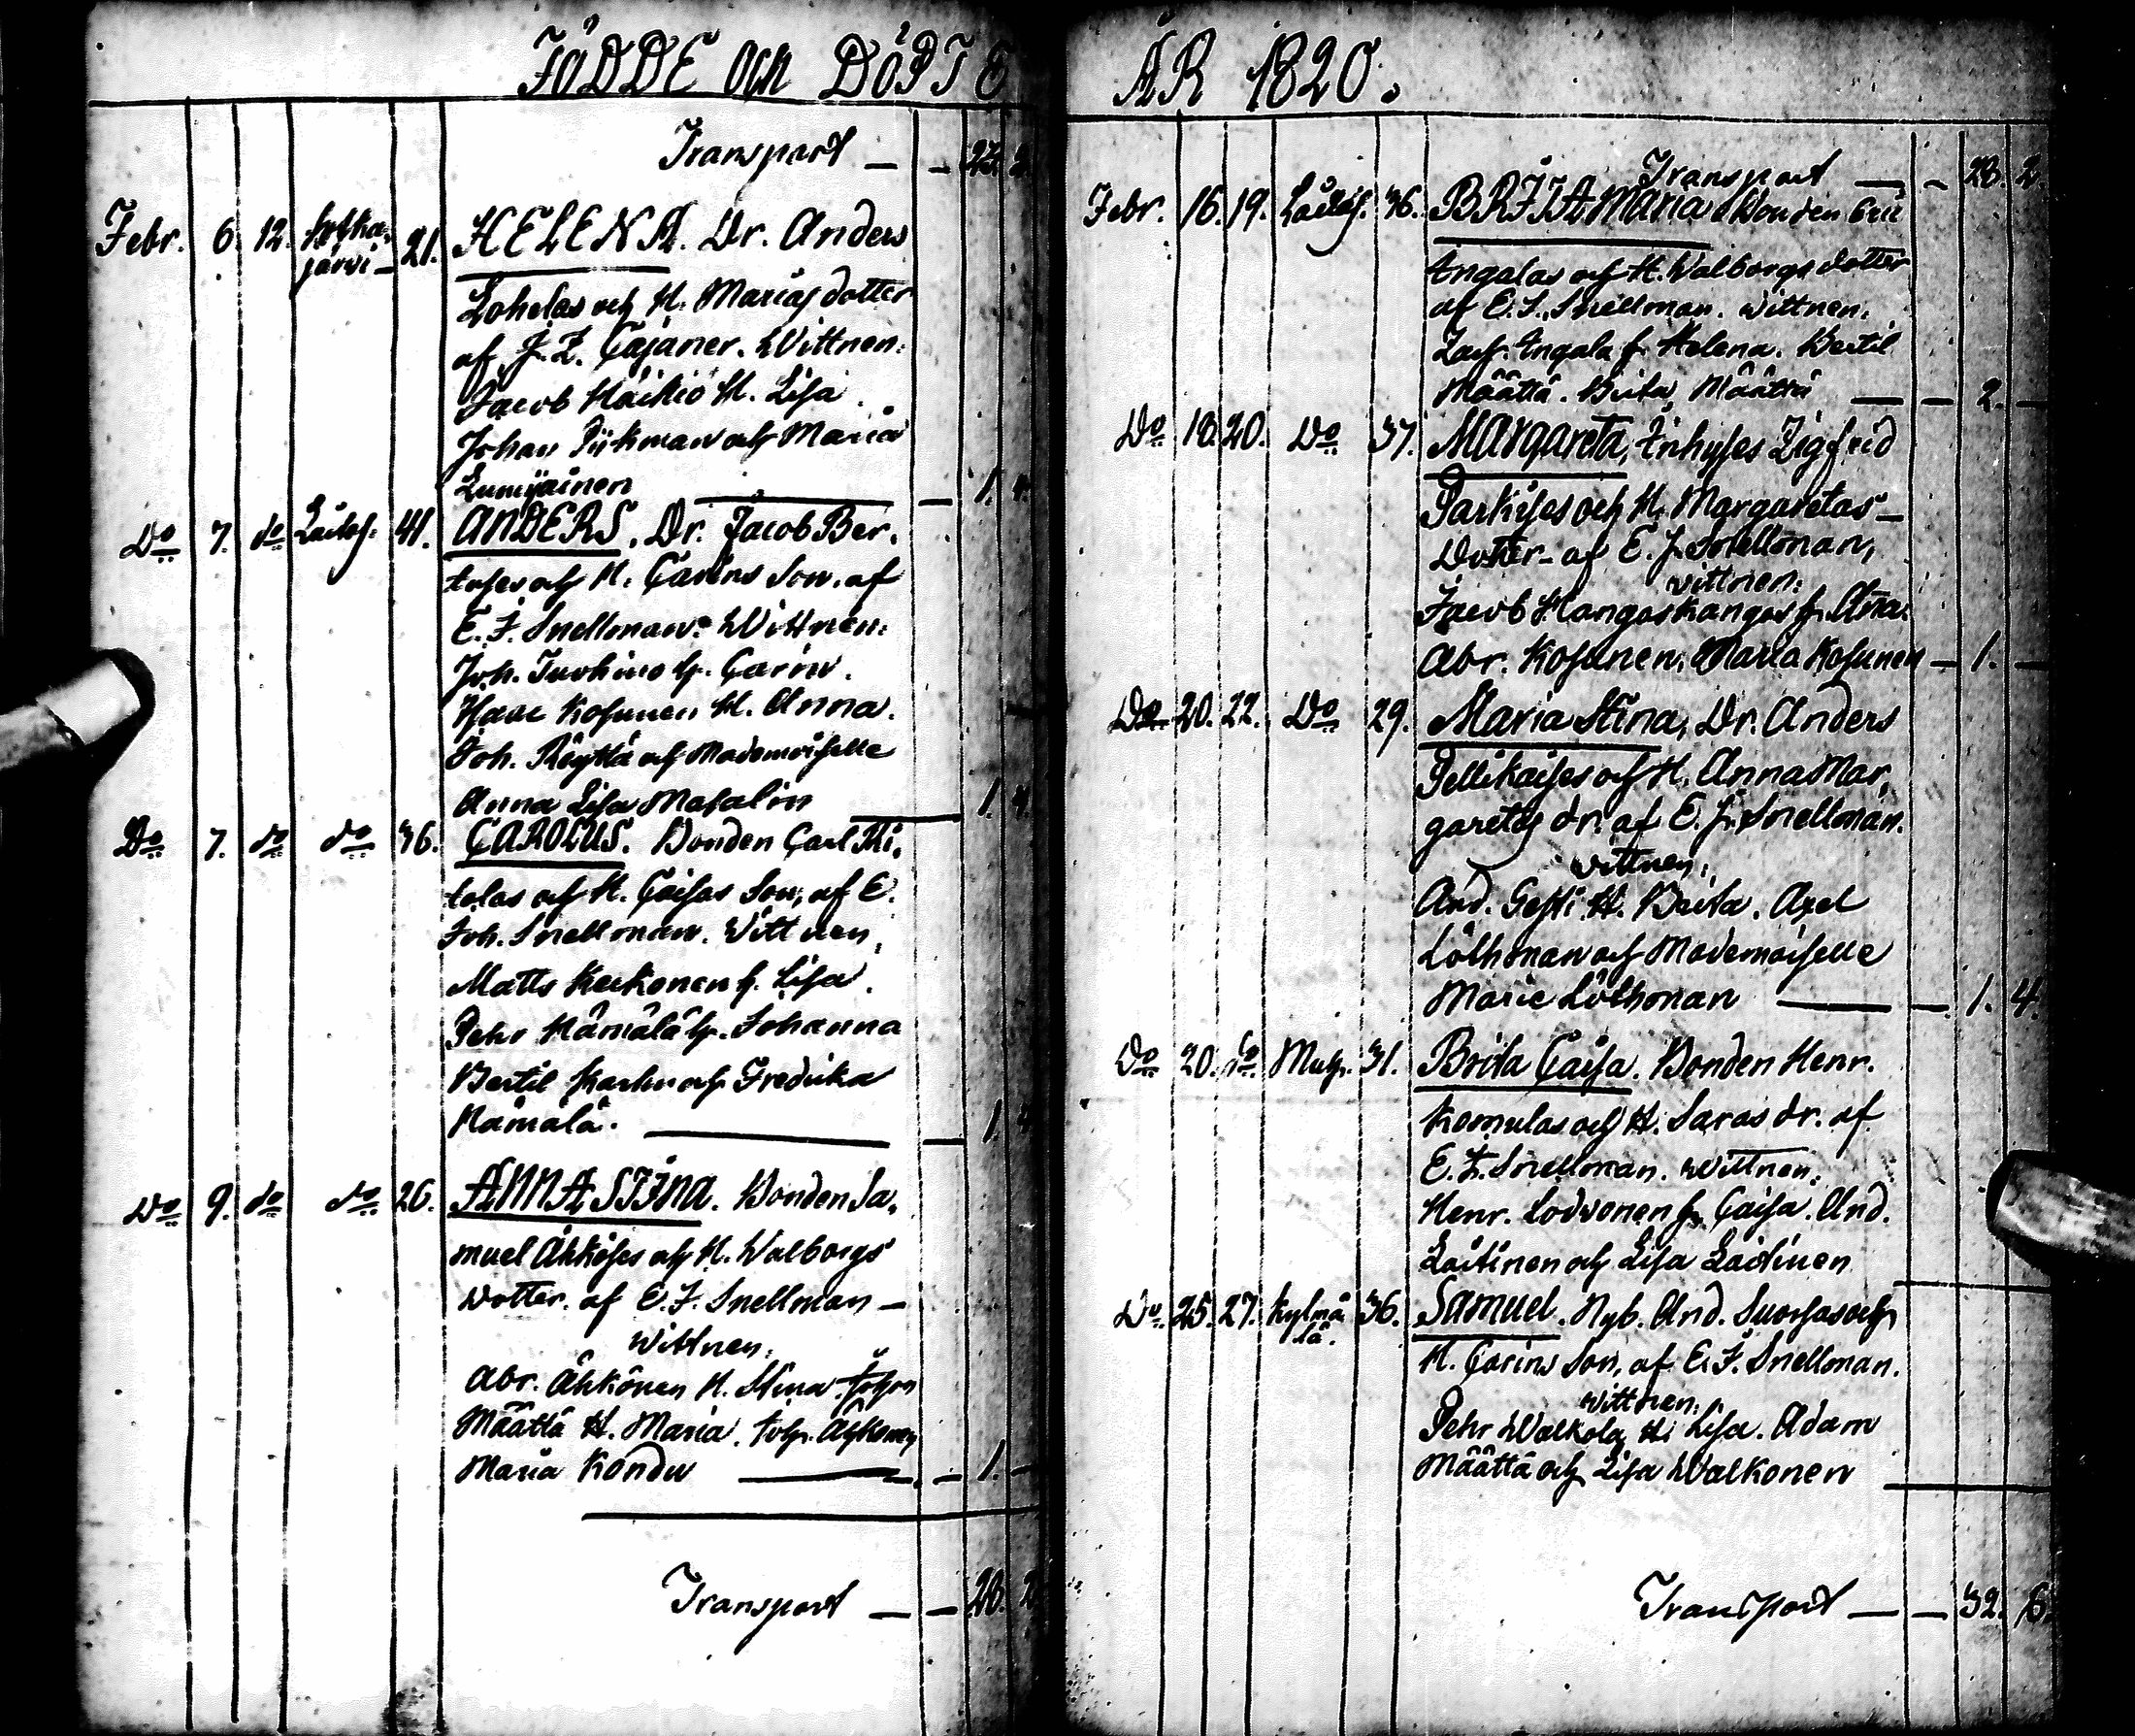 FÖDDE och DÖPTE
Transport — — 27. 2
Febr. 6. 12. Sotka- 21. HELENA. Dr. Anders
järvi —
Lohelas och H. Marias dotter
af J. Z. Cajaner. Wittnen:
Jacob Häikiö H. Lisa.
Johan Pijkman och Maria
Lumijainen — 1.
Do 7. do Laitas. 41. ANDERS. Dr. Jacob Ber-
och H. Carins Son. af
E. J. Snellman. Wittnen:
Joh. H. Carin.
Isaac Kosunen H. Anna.
Joh. Röyttä och Mademoiselle
Anna Lisa Masalin — 1. 4.
Do 7. do do 36. CAROLUS. Bonden Carl
och H. Caisas Son, af E.
Joh. Snellman. Wittnen,
Matts Keckonen H. Lisa.
Pehr Hämälä H. Johanna
Bertil och Fredrika
Hämälä. — 1. 4
Do 9. do do 26. ANNA STINA. Bonden Sa-
muel Ähköses och H. Walborgs
Dotter. af E. J. Snellman —
Wittnen:
Abr. Ähkönen H. Stina. Johan
Määttä H. Maria. Joh. Ähkönen
Maria Kondu — 1. —
Transport — — 28. 2
ÅR 1820.
Transport — — 28. 2.
Febr. 16. 19. Laitas. 36. BRITA Maria Bonden Eric
Angalas och H. Walborgs dotter
af E. J. Snellman. Wittnen.
Zach. Angala H. Helena. Bertil
Määttä. Brita Määttä — — 2. —
Do 18. 20. Do 37. Margareta, Inhyses Zigfrid
Parkises och H. Margaretas —
Dotter — af E. J. Snellman,
wittnen:
Jacob Hangaskangas H. Anna.
Abr. Kosunen. Maria Kosunen — 1. —
Do 20. 22. Do 29. Maria Stina, Dr. Anders
Pellikaises och H. Anna Mar-
garetas dr. af E. J. Snellman.
wittnen,
And. Gesti H. Brita. Axel
Löthman och Mademoiselle
Marie Löthman — — 1. 4.
Do 20. do Muh. 31. Brita Caisa. Bonden Henr.
Komulas och H. Saras dr. af
E. J. Snellman. Wittnen:
Henr. Lodvonen H. Caisa. And.
Laitinen och Lisa Laitinen
Do 25. 27. Kylmä- 36. Samuel. Nyb. And. Suorsas och
lä.
H. Carins Son, af E. J. Snellman.
wittnen:
Pehr Walkola H. Lisa. Adam
Määttä och Lisa Walkonen
Transport — — 32. 6.